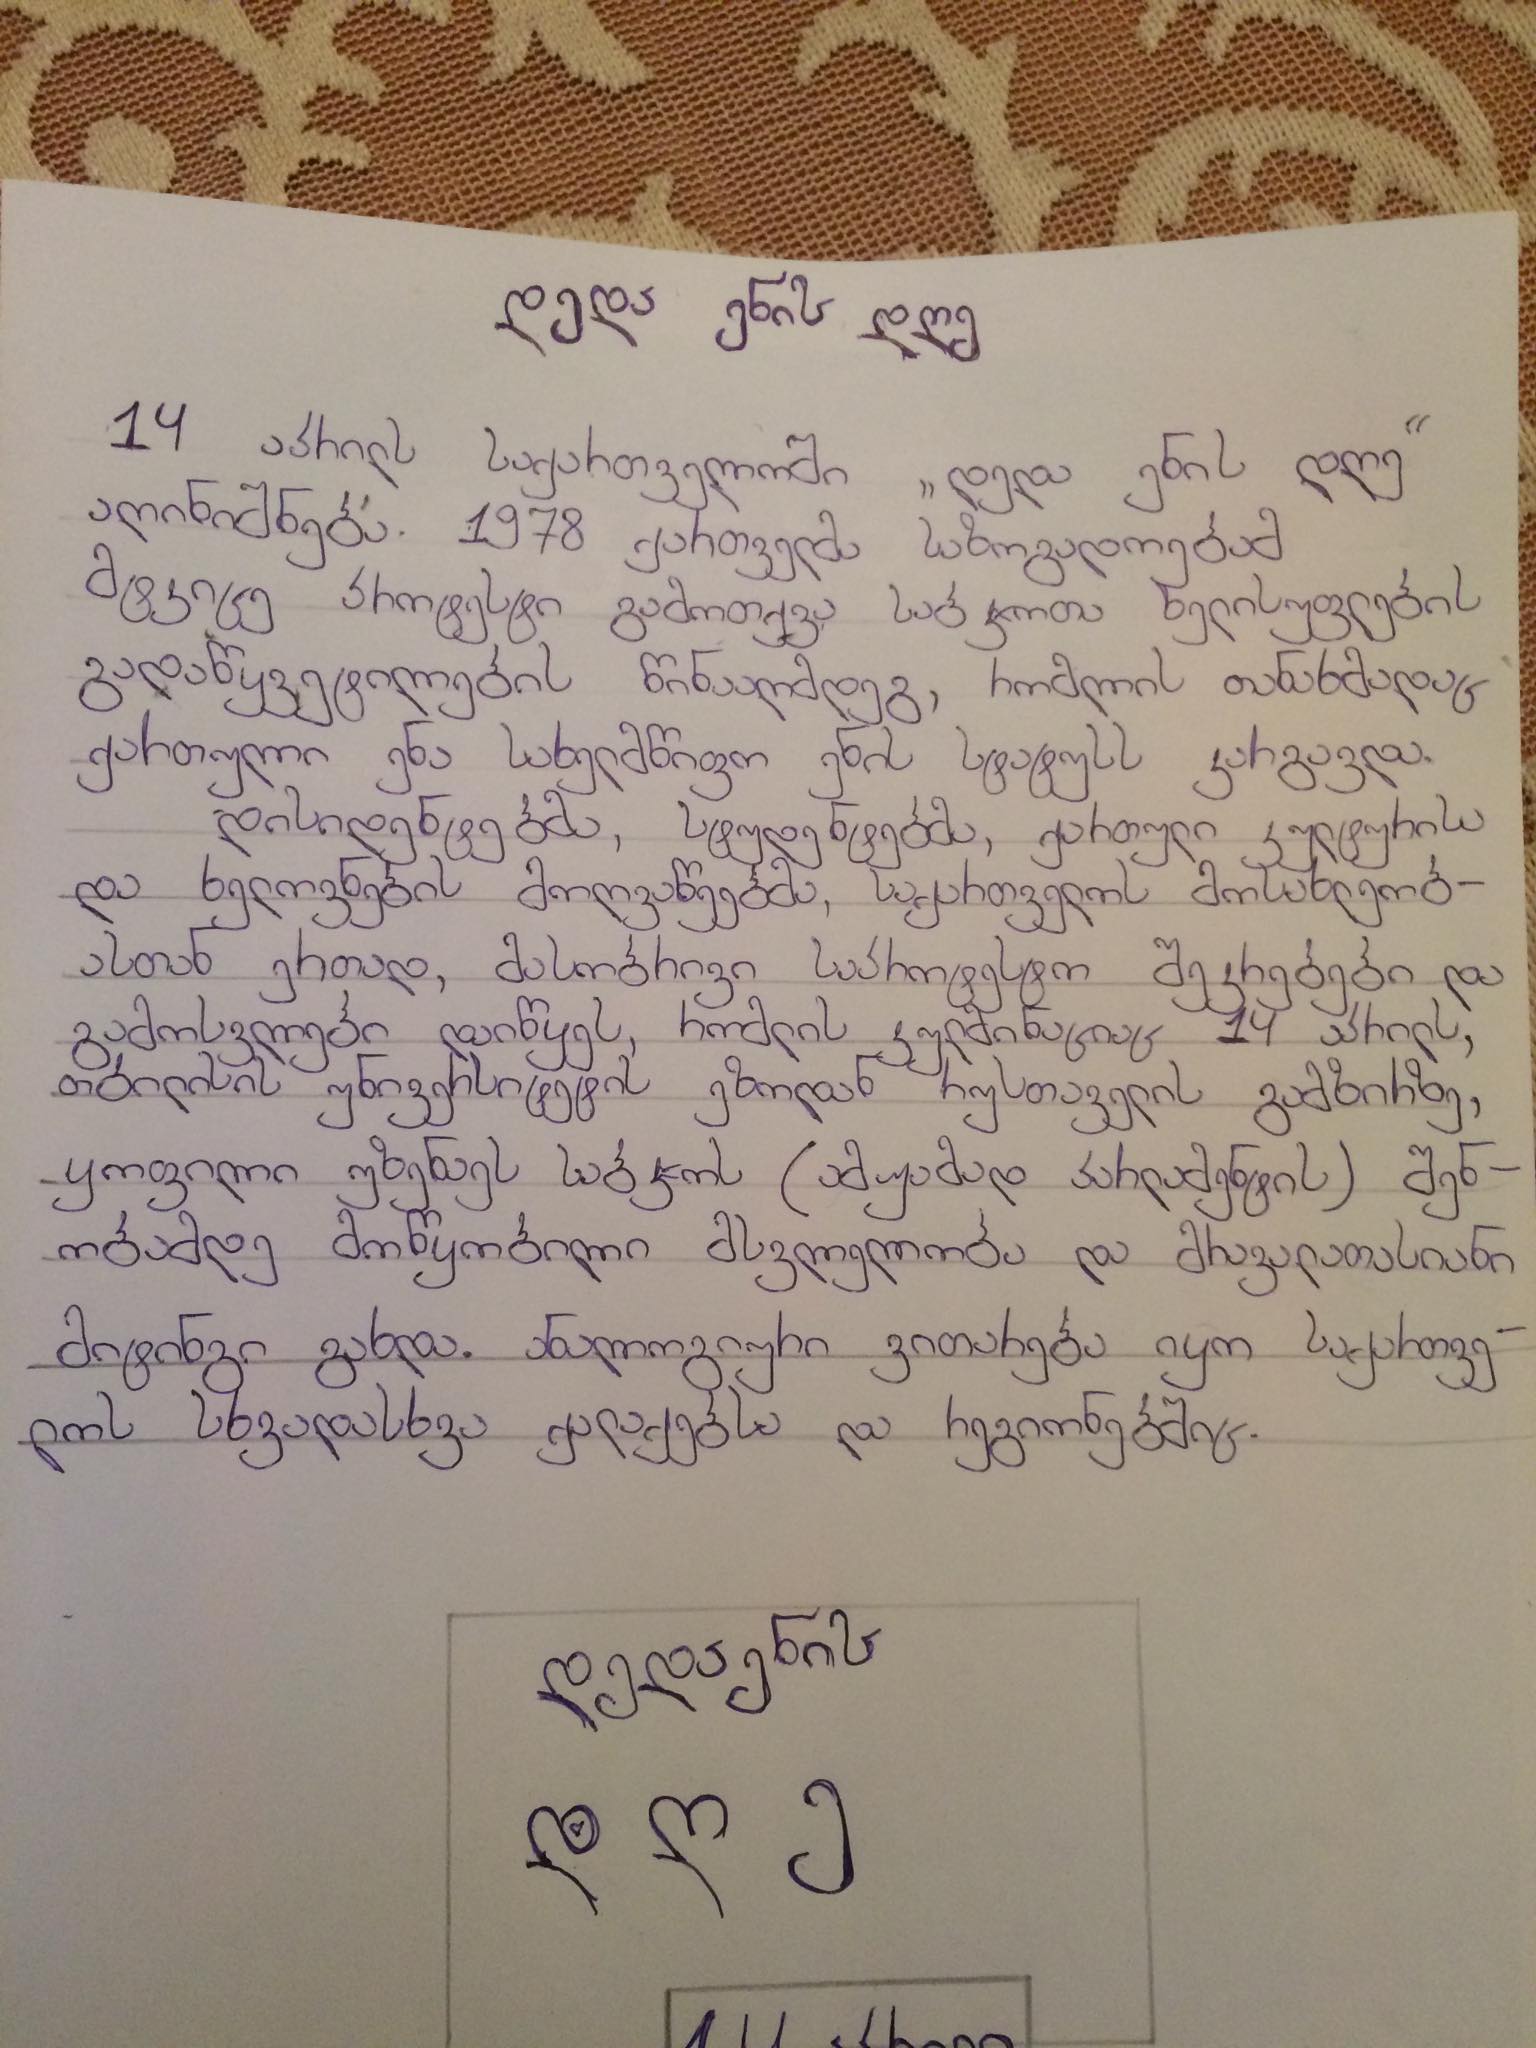 დედა ენის დღე
14 აპრილს საქართველოში „დედა ენის დღე“
აღინიშნება. 1978 ქართველმა საზოგადოებამ
მტკიცე პროტესტი გამოთქვა საბჭოთა ხელისუფლების
გადაწყვეტილების წინააღმდეგ, რომლის თანახმადაც
ქართული ენა სახელმწიფო ენის სტატუსს კარგავდა.
დისიდენტებმა, სტუდენტებმა, ქართული კულტურისა
და ხელოვნების მოღვაწეებმა, საქართველოს მოსახლეობ-
ასთან ერთად, მასობრივი საპროტესტო შეკრებები და
გამოსვლები დაიწყეს, რომლის კულმინაციაც 14 აპრილს,
თბილისის უნივერსიტეტის ეზოდან რუსთაველის გამზირზე,
ყოფილი უზენაეს საბჭოს (ამჟამად პარლამენტის) შენ-
ობამდე მოწყობილი მსვლელობა და მრავალათასიანი
მიტინგი გახდა. ანალოგიური ვითარება იყო საქართვე-
ლოს სხვადასხვა ქალაქებსა და რეგიონებშიც.
დედაენის
დღე
14 აპრილი